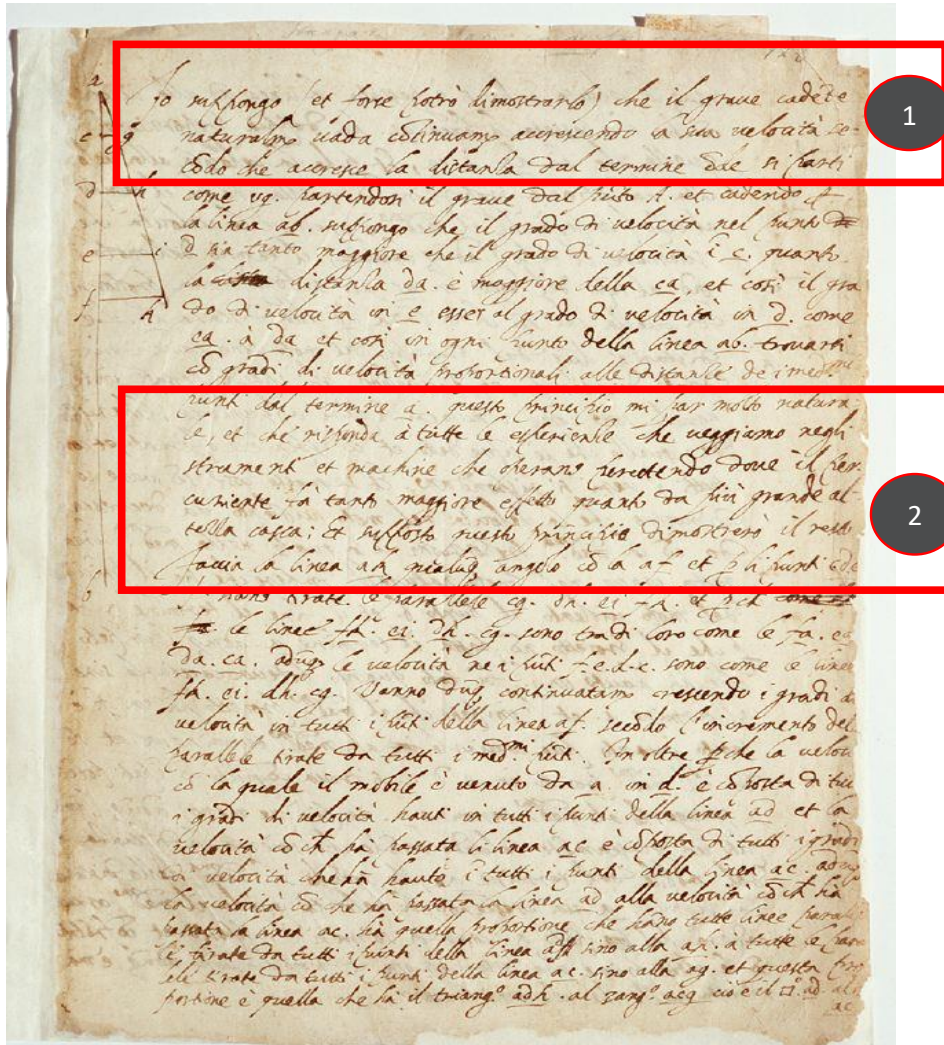 128
a
Io suppongo (et forse potrò dimostrarlo) che il grave cadēte
naturalm.e vada cōtinuam.e accrescendo la sua velocità se-
cōdo che accresce la distanza dal termine si partì
1
c g
d h
come vg. partendosi il grave dal a. et cadendo
la linea ab. suppongo che il grado di velocità nel punto
e i
d sia tanto maggiore che il grado di velocità ī c. quanto
la distanza da. è maggiore della ca, et così il gra
f k
do di velocità in e esser al grado di velocità in d. come
ea. à da et così in ogni punto della linea ab. trovarsi
cō gradi di velocità proportionali alle distanze de i med.mi
punti dal termine a. questo principio mi par molto natura
le, et che risponda à tutte le esperienze che veggiamo negli
strumenti et machine che operano percotendo dove il per
cuziente fà tanto maggiore effetto quanto da più grande al-
tezza casca; Et supposto questo principio dimostrerò il resto
2
Faccia la linea ak qualūq angolo cō la af et p li punti c de
b
f siano tirate le parallele cg. dh. ei fk. et p ch
le linee fk. ei. dh. cg. sono tra di loro come le fa. ea
da. ca. adūq le velocità ne i pūti f.e.d.c. sono come le linee
fk. ei. dh. cg. Vanno dūq continuatam.e crescendo i gradi di
velocità in tutti i pūti della linea af. secōdo l'incremento del
parallele tirate da tutti i med.mi pūti. In oltre pche la veloci
cō la quale il mobile è venuto da a. in d. è cōposta di tut
i gradi di velocità hauti in tutti i punti della linea ad et la
velocità cō ch ha passata la linea ac è cōposta di tutti i gradi
di velocità che ha hauto ī tutti i punti della linea ac. adūq
la velocità cō che ha passata la linea ad alla velocità cō ch ha
passata la linea ac. ha quella proportione che hāno tutte linee paral
le tirate da tutti i punti della linea ad sino alla ah. à tutte le para
lele tirate da tutti i punti della linea ac. sino alla ag. et questa pro
portione è quella che hà il triang.o adh. al rang.o acg cio è il □.o ad. al
ac